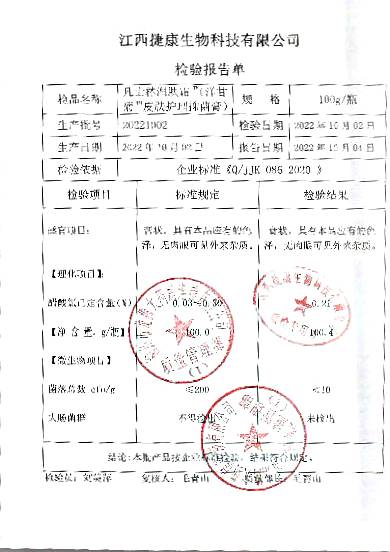 江西捷康生物科技有限公司
检验报告单
检品名称 规 格 100g/瓶
生产批号 20221002 检验日期 2022年10月02日
生产日期 2022年10月02日 报告日期 2022年10月04日
检验依据 企业标准《Q/JJK 086-2020》
检验项目 标准规定 检验结果
感官项目: 膏状，具有本品应有的色 膏状，具有本品应有的色
泽，无肉眼可见外来杂质。 泽，无肉眼可见外来杂质。
【理化项目】
醋酸氯己定含量(%) 0.21
【净含量 g/瓶】 100.0 100.4
【微生物项目】
菌落总数 cfu/g ≤200 <10
大肠菌群 不得检出 未检出
结论:本批产品按企业标准检验，结果符合规定。
检验员: 复核人:毛青山